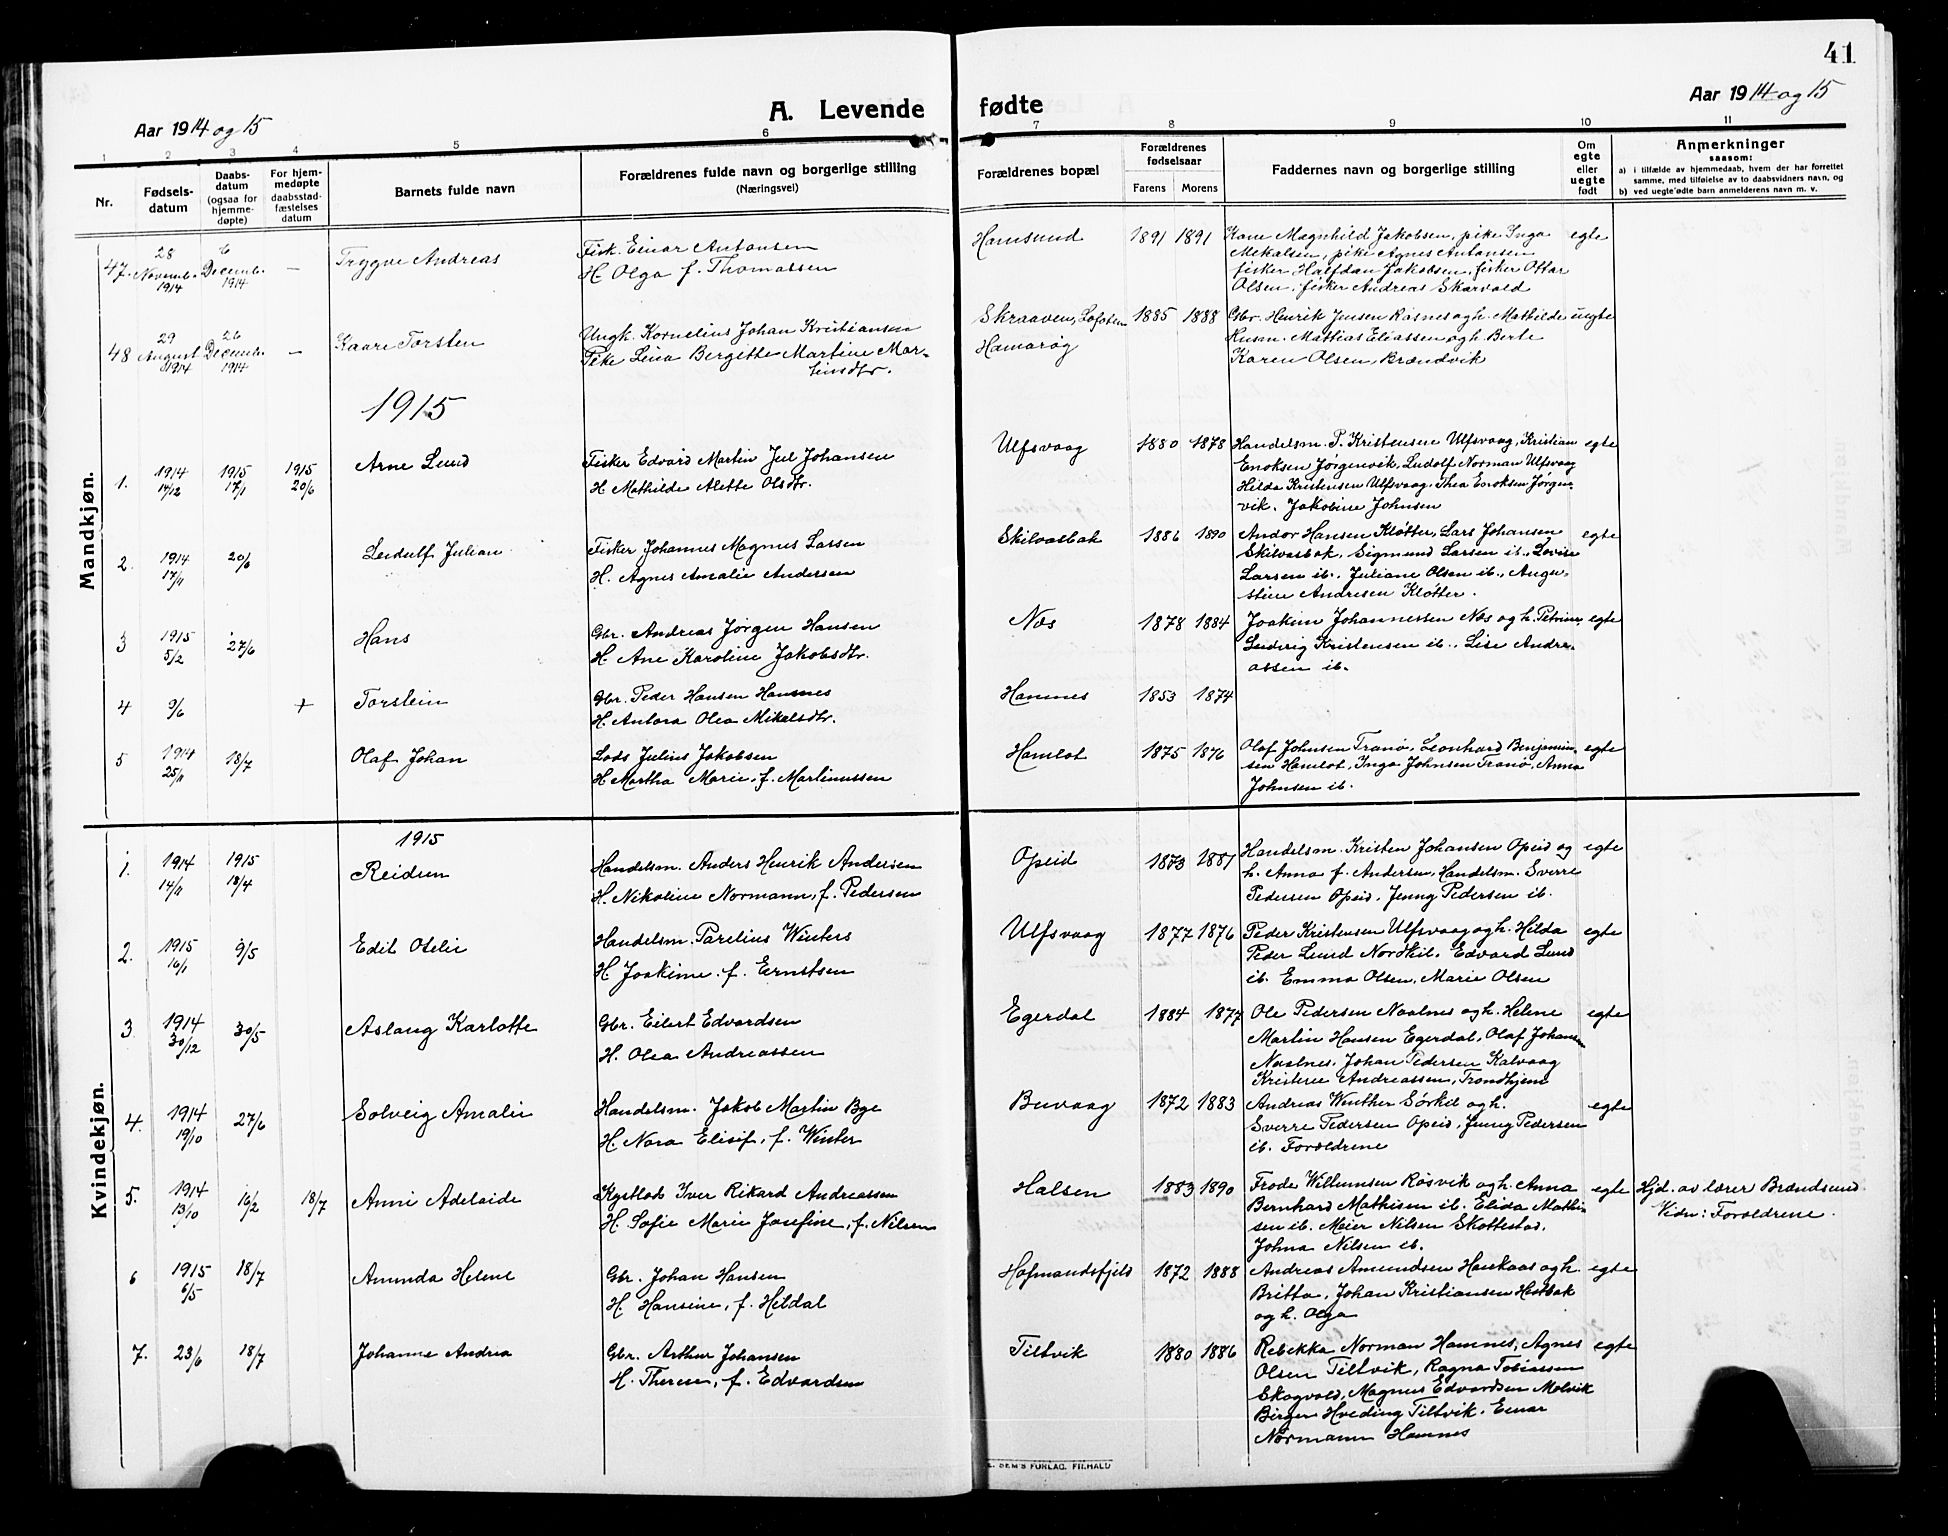 41
Aar 1914 og 15
A. Levende fødte
Aar 1914 og 15
1 2 3 4 5 6 7 8 9 10 11
Nr.
Fødsels-
datum
Daabs-
datum
(ogsaa for
hjemme-
døpte)
For hjem-
medøpte
daabsstad-
fæstelses
datum
Barnets fulde navn
Forældrenes fulde navn og borgerlige stilling
(Næringsvei)
Forældrenes bopæl
Forældrenes
fødselsaar
Farens Morens
Faddernes navn og borgerlige stilling
Om
egte
eller
uegte
født
Anmerkninger
saasom:
a) i tilfælde av hjemmedaab, hvem der har forrettet
samme, med tilføielse av to daabsvidners navn, og
b) ved uegte fødte barn anmelderens navn m. v.
Mandkjøn.
47. 28 Novemb. 1914 6 Decemb. 1914 — Trygve Andreas
Fisk. Einar Antonsen
H Olga f. Thomassen
Hamsund 1891 1891
Kone Magnhild Jakobsen, pike Inga
Mikalsen, pike Agnes Antonsen
fisker Halfdan Jakobsen, fisker Ottar
Olsen, fisker Andreas Skarvold
egte
48 29 August 1914 26 Decemb. 1914 — Kaare Torsten
Ungk. Kornelius Johan Kristiansen
Pike Lina Bergitte Martine Mar-
tinsdtr.
Skraaven, Lofoten
Hamarøg
1885 1888
Gbr. Henrik Jensen Røsnes og h. Mathilde
Husm. Mattias Eliassen og h. Berte
Karen Olsen, Brændvik
uegte
1915
1. 1914 14/12 1915 17/1 1915 20/6 Arne Lund
Fisker Edvard Martin Jul Johansen
H Mathilde Alette Olsdtr.
Ulfsvaag 1880 1878
Handelsm. P. Kristensen Ulfsvaag, Kristian
Enoksen Jørgenvik, Ludolf Norman Ulfsvaag
Hilda Kristensen Ulfsvaag, Thea Enoksen Jørgen-
vik, Jakobine Johnsen
egte
2. 1914 17/11 20/6 Leidulf Julian
Fisker Johannes Magnus Larsen
H. Agnes Amalie Andersen
Skilvasbak 1886 1890
Andor Hansen Kløtter, Lars Johansen
Skilvasbak, Sigmund Larsen ib., Lovise
Larsen ib., Juliane Olsen ib., Augu-
stine Andresen Kløtter.
egte
3 1915 5/2 27/6 Hans
Gbr. Andreas Jørgen Hansen
H. Ane Karoline Jakobsdtr.
Næs 1878 1884
Joakim Johannessen Næs og h. Petrine
Ludvig Kristensen ib., Lise Andre-
assen ib.
egte
4 9/6 + Torstein
Gbr. Peder Hansen Hamnes
H. Antora Olea Mikalsdtr.
Hamnes 1853 1874
5 1914 25/11 18/7 Olaf Johan
Lods Julius Jakobsen
H Martha Marie, f. Martinussen
Hamlot 1875 1876
Olaf Johnsen Tranø, Leonhard Benjamin-
sen Hamlot, Inga Johnsen Tranø, Anna
Johnsen ib.
egte
Kvindekjøn.
1915
1. 1914 14/11 1915 18/4 Reidun
Handelsm. Anders Henrik Andersen
H. Nikoline Normann, f. Pedersen
Opeid 1873 1881
Handelsm. Kristen Johansen Opeid og
h. Anna f. Andersen, Handelsm. Sverre
Pedersen Opeid, Jenny Pedersen ib.
egte
2. 1915 16/1 9/5 Edil Otelie
Handelsm. Parelius Winters
H Joakime f. Ernstsen
Ulfsvaag 1877 1876
Peder Kristensen Ulfsvaag og h. Hilda
Peder Lund Nordkil, Edvard Lund
ib. Emma Olsen, Marie Olsen
egte
3 1914 30/12 30/5 Aslaug Karlotte
Gbr. Eilert Edvardsen
H. Olea Andreassen
Egerdal 1884 1877
Ole Pedersen Naalnes og h. Helene
Martin Hansen Egerdal, Olaf Johansen
Naalnes, Johan Pedersen Kalvaag
Kristine Andreassen, Trondhjem
egte
4. 1914 19/10 27/6 Solveig Amalie
Handelsm. Jakob Martin Bye
H. Nora Elisif, f. Winter
Buvaag 1872 1883
Andreas Winther Sørkil og h.
Sverre Pedersen Opeid, Jenny Pedersen
ib. Foreldrene
egte
5. 1914 13/10 16/2 18/7 Anni Adelaide
Kystlods Iver Rikard Andreassen
H. Sofie Marie Josefine, f. Nilsen
Halsen 1883 1890
Frode Willumsen Røsvik og h. Anna
Bernhard Mathisen ib. Elida Mathi-
sen ib. Meier Nilsen Skottestad,
Johna Nilsen ib.
egte
Hjd. av lærer Brændsund
Vidn: Foreldrene.
6 1915 6/5 18/7 Amunda Helene
Gbr. Johan Hansen
H Hansine, f. Hildal
Hofmandsfjeld 1872 1888
Andreas Amundsen Haukaas og h.
Britta, Johan Kristiansen Hestbak
og h. Olga
egte
7. 23/6 18/7 Johanne Andrea
Gbr. Arthur Johansen
H. Therese, f. Edvardsen
Tiltvik 1880 1886
Rebekka Norman Hamnes, Agnes
Olsen Tiltvik, Ragna Tobiassen
Skogvold, Magnus Edvardsen Molvik
Birger Hveding Tiltvik, Einar
Normann Hamnes
egte
E. SEM'S FORLAG. FR.HALD